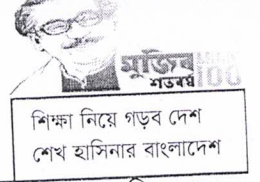 মুজিব
শতবর্ষ 100
শিক্ষা নিয়ে গড়ব দেশ
শেখ হাসিনার বাংলাদেশ